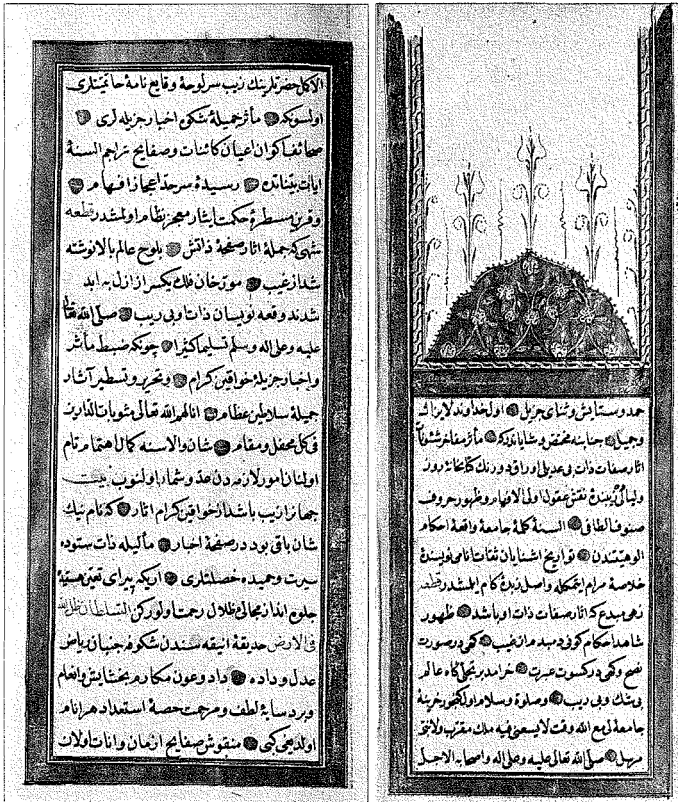 حمد وستایش وثنای جزیل اول خداوند لایزاله
وجمیل جنابنه مختص وشایاندركه مآثر مفاخر شئونات
آثار صفات ذات بی عدیلی اوراق دورنك كتابخانهٔ روز
ولیالی نقش عقول اولی الافهام وظهور حروف
صنوف الطافی السنهٔ كلمهٔ جامعهٔ واقعهٔ احكام
الوهیتندن تواریخ اشنایان ثقات نامی نویسندهٔ
خلاصهٔ مرام ایتمكله واصل زبدهٔ كام ایلمشدر قطعه
زهی مبدع كه اثار صفات ذات او باشد ظهور
شاهد احكام كونی دمبدم از غیب كهی در صورت
نصح وكهی در كسوت عبرت خرامد بر تجلی كاه عالم
بی شك وبی ریب وصلوة وسلام اول كنجور خزینهٔ
جامعهٔ لی مع الله وقت لا یسعنی فیه ملك مقرب ولا نبی
مرسل صلی الله تعالی علیه وعلی اله واصحابه الاجل
الاكمل حضرتلرینك زیب سرلوحهٔ وقایع نامهٔ خاتمیتلری
اولسونكه مآثر جمیلهٔ شكن اخبار جزیله لری
صحائف اكوان اعیان كائنات وصفایح تراجم السنهٔ
ایات بیناتده رسیدهٔ سرحد اعجاز افهام
وقرین مسطرهٔ حكمت ایثار معجز نظام اولمشدر قطعه
شهی كه جملهٔ اثار صفحهٔ ذاتش بلوح عالم بالا نوشته
شد از غیب مورخان فلك یكسر از ازل به ابد
شدند وقعه نویسان ذات وبی ریب صلی الله تعالی
علیه وعلی اله وسلم تسلیما كثیرا چونكه ضبط مآثر
واخبار جزیلهٔ خواقین كرام وتحریر وتسطیر آثار
جمیلهٔ سلاطین عظام انالهم الله تعالی مثوبات الدارین
فی كل محفل ومقام شان والاسنه كمال اهتمام تام
اولنان امور لازمه دن عد وشمار اولنوب بیت
جهانرا زیب باشد از خواقین كرام اثار كه نام نیك
شان باقی بود در صفحهٔ اخبار ذات ستوده
سیرت وحمیده خصلتلری اریكه پیرای تعین هستیله
جلوه انداز مجالی ظلال رحمت اولوركن السلطان ظل الله
فی الارض حدیقهٔ انیقه سندن شكوفه جنبان ریاض
عدل وداده داد وعون مكارم بخشایش وانعام
وبرد سایهٔ لطف ومرحمت حصهٔ استعداد هر انام
اولدیغی كبی منقوش صفایح ازمان وانات اولان